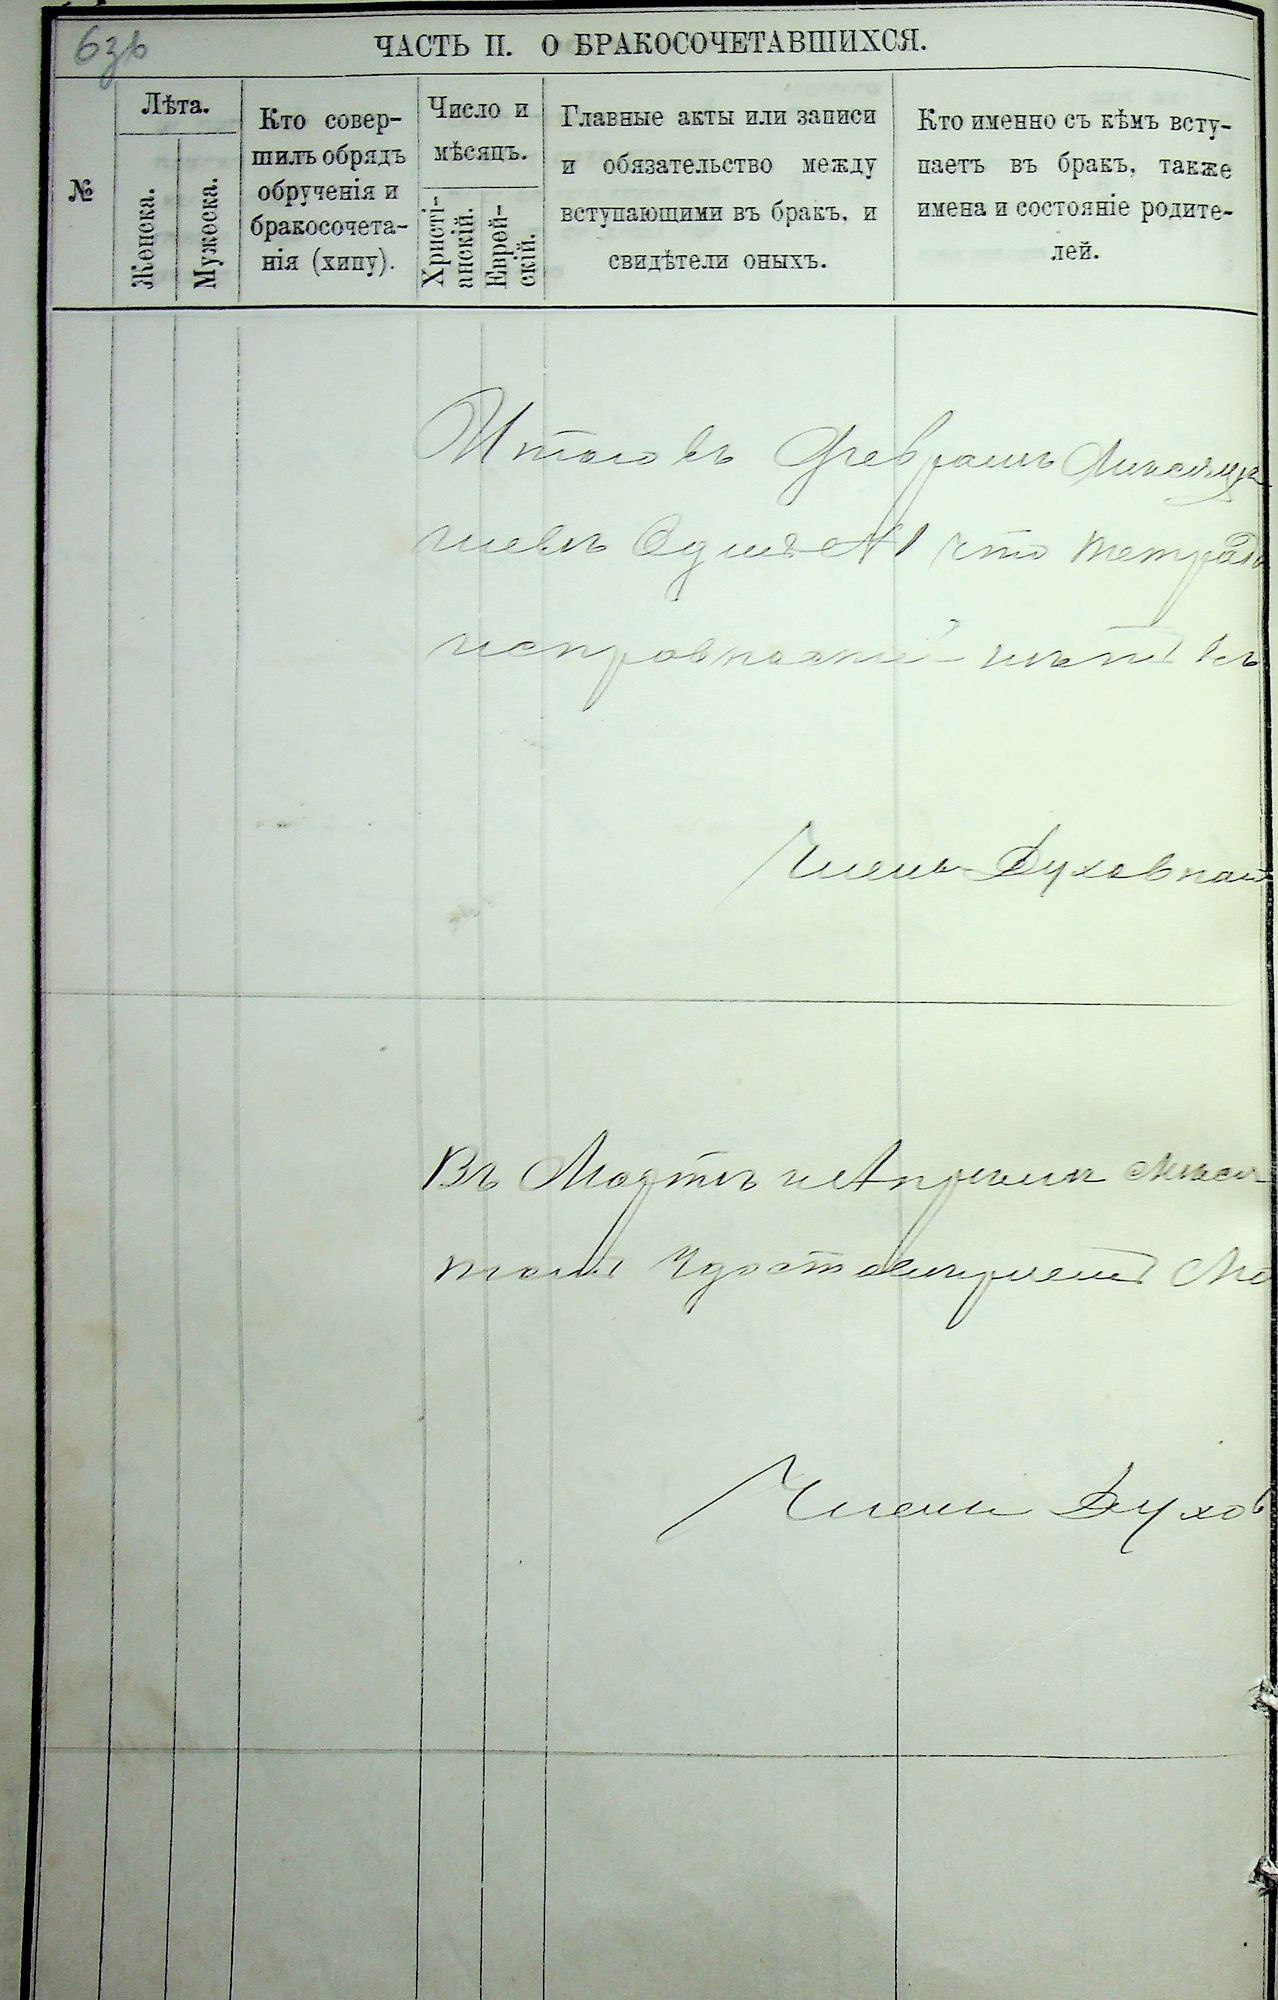 6зв
ЧАСТЬ II. О БРАКОСОЧЕТАВШИХСЯ.
№
Лѣта.
Женска.
Мужеска.
Кто совер-
шилъ обрядъ
обрученія и
бракосочета-
нія (хипу).
Число и
мѣсяцъ.
Христі-
анскій.
Еврей-
скій.
Главные акты или записи
и обязательство между
вступающими въ бракъ, и
свидѣтели оныхъ.
Кто именно съ кѣмъ всту-
паетъ въ бракъ, также
имена и состояніе родите-
лей.
Итого въ Февралѣ Мѣсяцѣ
Одинъ №1 что
исправностей нѣтъ въ
Членъ Духовнаго
Въ Мартѣ и Апрѣлѣ Мѣся
удостовѣряетъ Мо
Членъ Духов